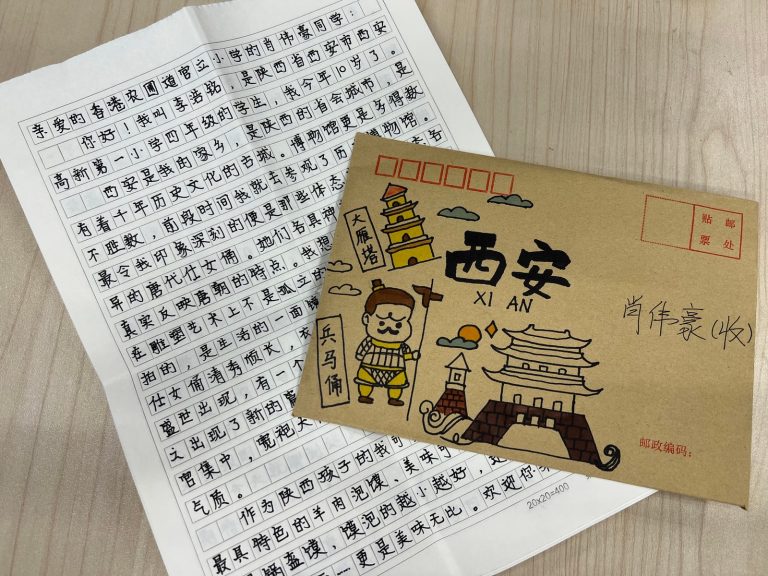 亲爱的香港农圃道官立小学的肖伟豪同学：
你好！我叫李浩铭，是陕西省西安市西安
高新第一小学四年级的学生，我今年10岁了。
西安是我的家乡，是陕西的省会城市，是
有着千年历史文化的古城。博物馆更是多得数
不胜数，前段时间我就去参观了历 博物馆。
最令我印象深刻的便是那些体态
异的唐代仕女俑。她们各具神
真实反映唐朝的特点。我想
在雕塑艺术上不是孤立的
拍的，是生活的一面镜
仕女俑清秀颀长，衣
盛世出现，有一个
又出现了新的
官集中，宽袍大
气质。
作为陕西孩子的我可
最具特色的羊肉泡馍、美味可
锅盔馍，馍泡的越小越好，
更是美味无比。欢迎你
20x20=400
大雁塔
西安
XI AN
兵马俑
贴邮
票处
肖伟豪(收)
邮政编码：